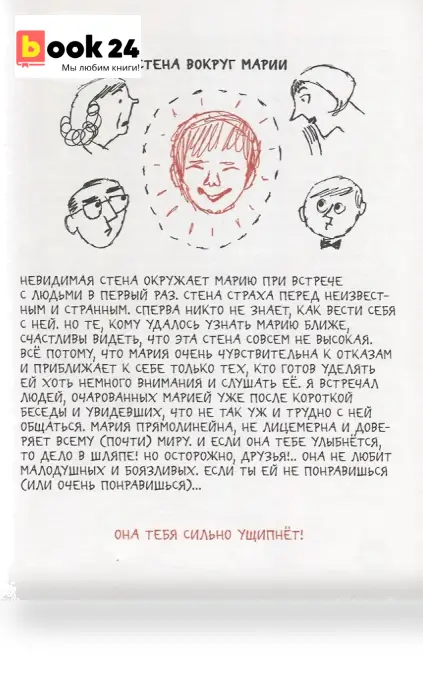 book 24
Мы любим книги!
СТЕНА ВОКРУГ МАРИИ
НЕВИДИМАЯ СТЕНА ОКРУЖАЕТ МАРИЮ ПРИ ВСТРЕЧЕ
С ЛЮДЬМИ В ПЕРВЫЙ РАЗ. СТЕНА СТРАХА ПЕРЕД НЕИЗВЕСТ-
НЫМ И СТРАННЫМ. СПЕРВА НИКТО НЕ ЗНАЕТ, КАК ВЕСТИ СЕБЯ
С НЕЙ. НО ТЕ, КОМУ УДАЛОСЬ УЗНАТЬ МАРИЮ БЛИЖЕ,
СЧАСТЛИВЫ ВИДЕТЬ, ЧТО ЭТА СТЕНА СОВСЕМ НЕ ВЫСОКАЯ.
ВСЁ ПОТОМУ, ЧТО МАРИЯ ОЧЕНЬ ЧУВСТВИТЕЛЬНА К ОТКАЗАМ
И ПРИБЛИЖАЕТ К СЕБЕ ТОЛЬКО ТЕХ, КТО ГОТОВ УДЕЛЯТЬ
ЕЙ ХОТЬ НЕМНОГО ВНИМАНИЯ И СЛУШАТЬ ЕЁ. Я ВСТРЕЧАЛ
ЛЮДЕЙ, ОЧАРОВАННЫХ МАРИЕЙ УЖЕ ПОСЛЕ КОРОТКОЙ
БЕСЕДЫ И УВИДЕВШИХ, ЧТО НЕ ТАК УЖ И ТРУДНО С НЕЙ
ОБЩАТЬСЯ. МАРИЯ ПРЯМОЛИНЕЙНА, НЕ ЛИЦЕМЕРНА И ДОВЕ-
РЯЕТ ВСЕМУ (ПОЧТИ) МИРУ. И ЕСЛИ ОНА ТЕБЕ УЛЫБНЁТСЯ,
ТО ДЕЛО В ШЛЯПЕ! НО ОСТОРОЖНО, ДРУЗЬЯ!.. ОНА НЕ ЛЮБИТ
МАЛОДУШНЫХ И БОЯЗЛИВЫХ. ЕСЛИ ТЫ ЕЙ НЕ ПОНРАВИШЬСЯ
(ИЛИ ОЧЕНЬ ПОНРАВИШЬСЯ)...
ОНА ТЕБЯ СИЛЬНО УЩИПНЁТ!